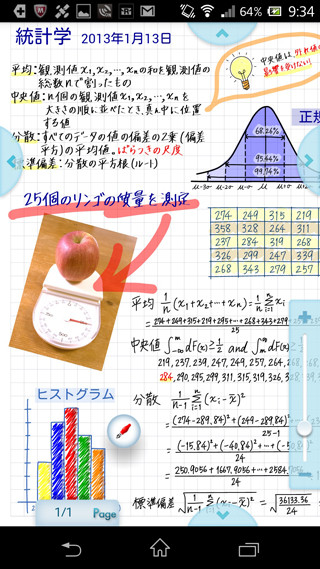 64% 9:34
統計学 2013年1月13日
平均:観測値x1,x2,…,xnの和を観測値の
総数nで割ったもの
中央値:n個の観測値x1,x2,…,xnを
大きさの順に並べたとき、真ん中に位置
する値
分散:すべてのデータの値の偏差の2乗(偏差
平方)の平均値。ばらつきの尺度
標準偏差:分散の平方根(ルート)
中央値は、外れ値の
影響を受けにくい
正規
68.26%
95.44%
99.74%
μ-3σ μ-2σ μ-σ μ μ+σ
25個のリンゴの質量を測定
274 249 315 219
358 328 264 311
237 284 319 268
326 299 247 339
268 343 279 257
平均 1/n (x1+x2+…+xn)=1/n Σ xi
=274+249+315+219+295+…+268+343+279+
25
中央値 ∫dF(x)≥1/2 and ∫dF(x)≥
219, 237, 239, 247, 249, 257, 264, 268,
284, 290, 295, 299, 311, 315, 319, 326, 328
分散 1/n-1 Σ (xi-x̄)²
=(274-289.84)²+(249-289.84)²
25-1
=(-15.84)²+(-40.84)²+
24
=250.9056+1667.9056+…+2584
24
標準偏差 √1/n-1 Σ(xi-x̄)² = √36133.36
24
ヒストグラム
1/1 Page